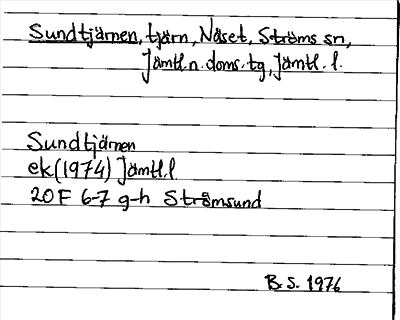 Sundtjärnen, tjärn, Näset, Ströms sn,
Jämtl. n. doms. tg, Jämtl. l.
Sundtjärnen
ek (1974) Jämtl. l
20 F 6-7 g-h Strömsund
B. S. 1976